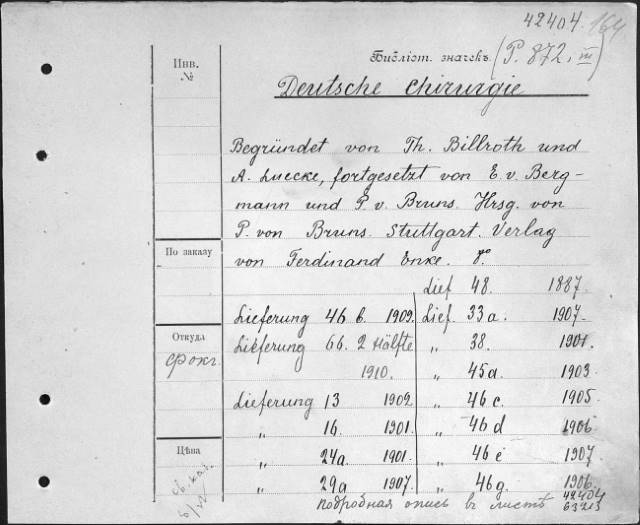 42404. 164
Инв.
№
Библіот. значекъ. (P. 872, III)
Deutsche Chirurgie
Begründet von Th. Billroth und
A. Luecke, fortgesetzt von E. v. Berg-
mann und P. v. Bruns. Hrsg. von
P. von Bruns. Stuttgart. Verlag
von Ferdinand Enke. 8°
По заказу
Lief 48. 1887.
Lieferung 46 b. 1909. Lief. 33a. 1907.
Откуда
Lieferung 66. 2 Hälfte „ 38. 1901.
1910. „ 45a. 1903
Lieferung 13 1902. „ 46 c. 1905
„ 16. 1901. „ 46 d 1906
Цѣна
„ 24a. 1901. „ 46 e 1907
„ 29a 1907. „ 46g. 1906.
подробная опись въ листѣ 42404
63213